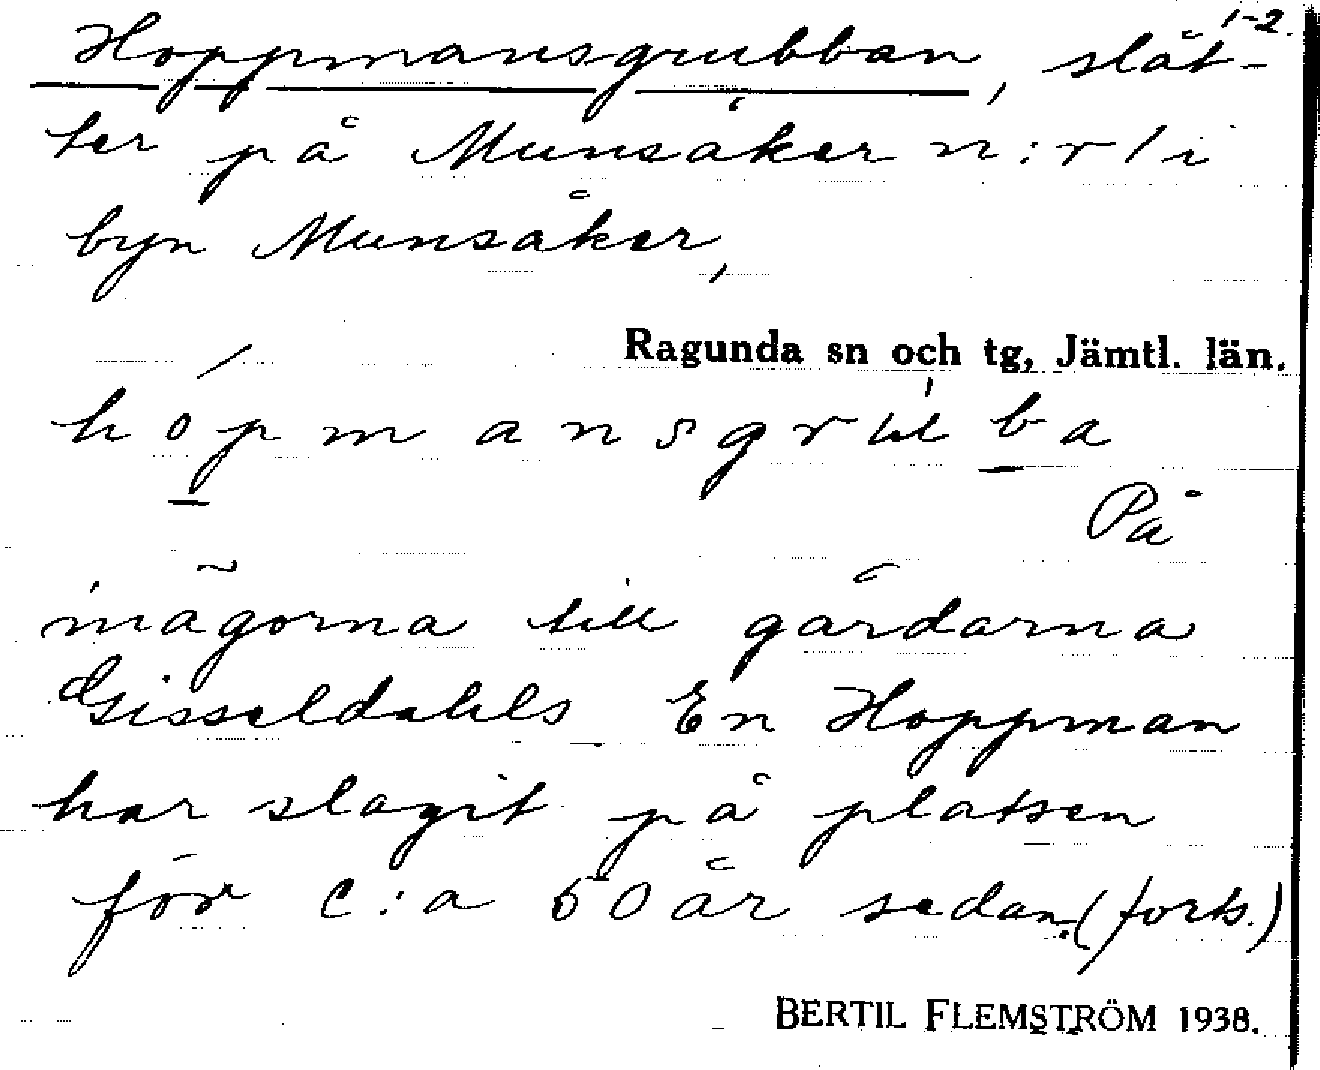 1-2.
Hoppmansgrubban, slåt-
ter på Munsåker n:r 1 i
byn Munsåker,
Ragunda sn och tg, Jämtl. län.
hópmansgruba
På
inägorna till gårdarna
Gisseldahls En Hoppman
har slagit på platsen
för c:a 50 år sedan. (forts.)
BERTIL FLEMSTRÖM 1938.